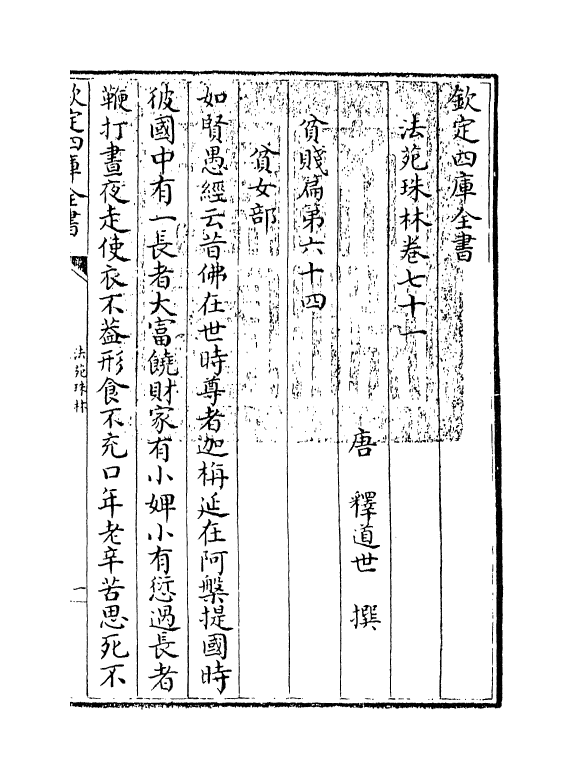 欽定四庫全書
法苑珠林卷七十一
唐　釋道世　撰
貧賤篇第六十四
貧女部
如賢愚經云昔佛在世時尊者迦栴延在阿槃提國時
彼國中有一長者大富饒財家有小婢小有愆過長者
鞭打晝夜走使衣不葢形食不充口年老辛苦思死不
欽定四庫全書
法苑珠林
一